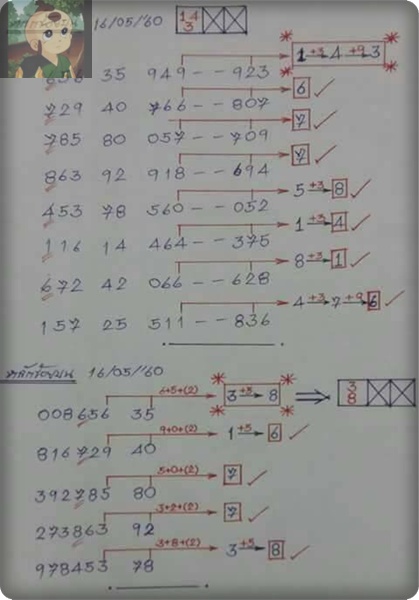 16/05/'60 1 4 3
656 35 949 - - 923 1 +3 4 +9 3
729 40 766 - - 807 6 ✓
785 80 057 - - 709 7 ✓
863 92 918 - - 694 7 ✓
453 78 560 - - 052 5 +3 8 ✓
116 14 464 - - 375 1 +3 4 ✓
672 42 066 - - 628 8 +3 1 ✓
157 25 511 - - 836 4 +3 7 +9 6 ✓
หลักร้อยบน 16/05/'60
6+5+(2) 3 +5 8 ⇒ 3 8
008656 35
9+0+(2) 1 +5 6 ✓
816729 40
5+0+(2) 7 ✓
392785 80
3+2+(2) 7 ✓
273863 92
3+8+(2) 3 +5 8 ✓
978453 78